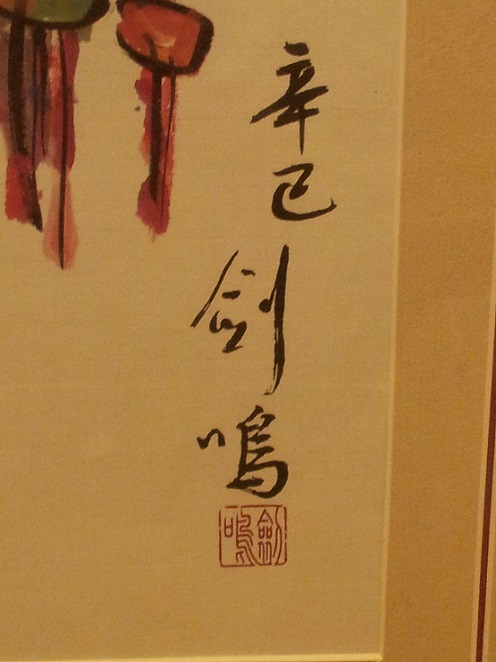 辛巳剑鳴
劍鳴